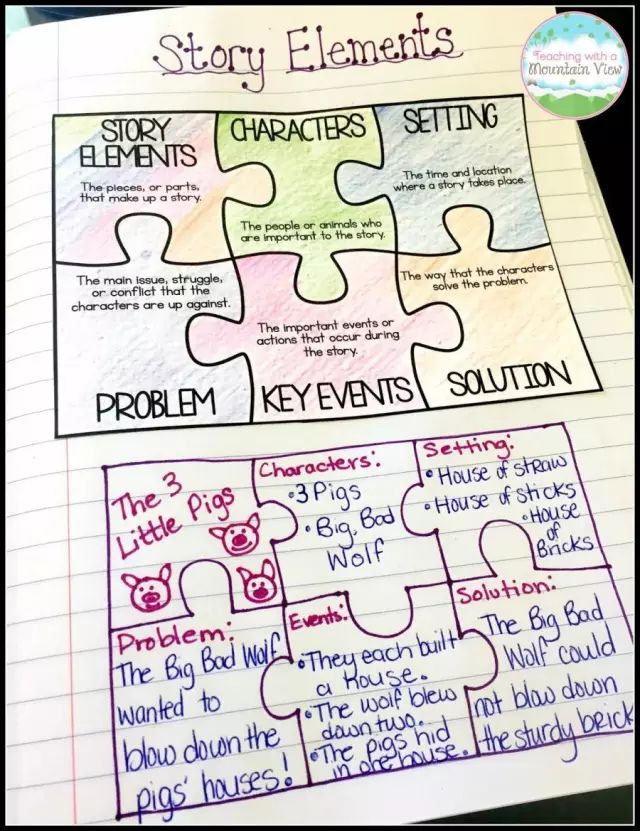 Story Elements
Teaching with a
Mountain View
STORY
ELEMENTS
The pieces, or parts,
that make up a story.
CHARACTERS
The people or animals who
are important to the story.
SETTING
The time and location
where a story takes place.
The main issue, struggle,
or conflict that the
characters are up against.
PROBLEM
The important events or
actions that occur during
the story.
KEY EVENTS
The way that the characters
solve the problem.
SOLUTION
The 3
Little Pigs
Characters:
• 3 Pigs
• Big, Bad
Wolf
Setting:
• House of straw
• House of sticks
• House
of
Bricks
Problem:
The Big Bad Wolf
wanted to
blow down the
pigs' houses!
Events:
• They each built
a house.
• The wolf blew
down two.
• The pigs hid
in one house.
Solution:
The Big Bad
Wolf could
not blow down
the sturdy brick